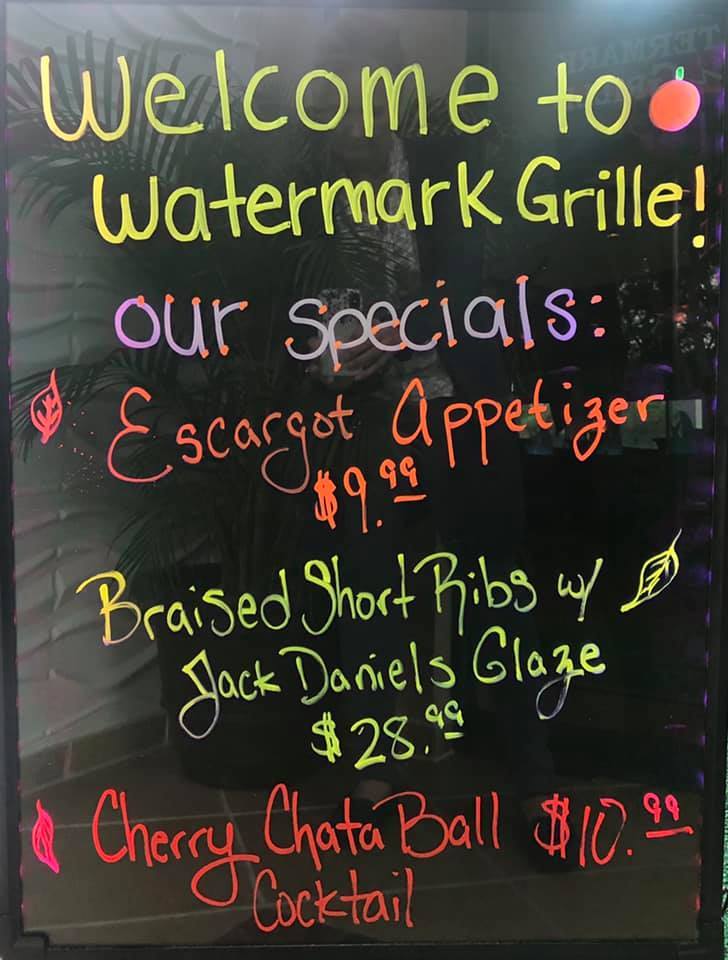 Welcome to
Watermark Grille!
our specials:
Escargot Appetizer
$9.99
Braised Short Ribs w/
Jack Daniels Glaze
$28.99
Cherry Chata Ball $10.99
Cocktail